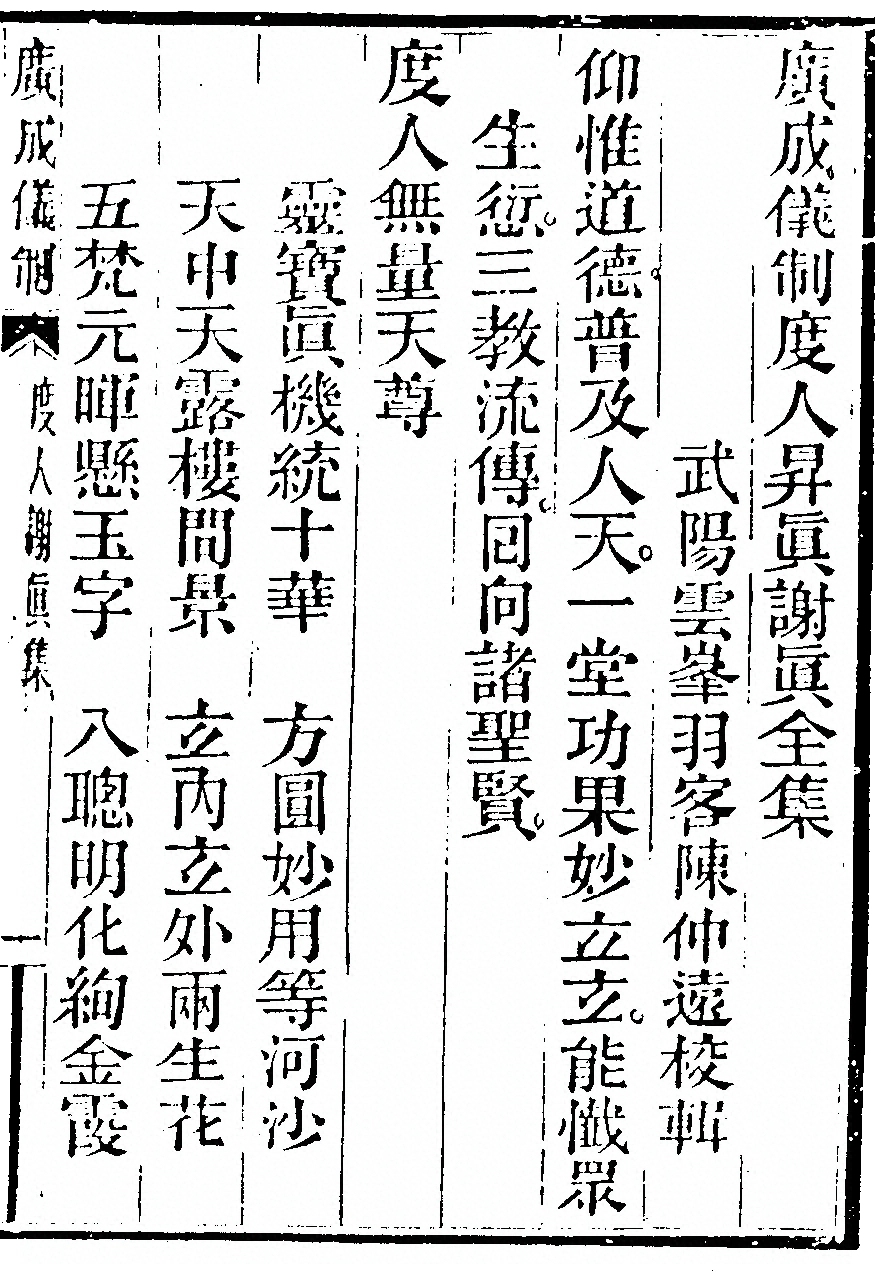 廣成儀制度人昇眞謝眞全集
武陽雲峯羽客陳仲遠校輯
仰惟道德。普及人天。一堂功果妙立立。能懺眾
生愆。三教流傳。回向諸聖賢。
度人無量天尊
靈寶眞機統十華　方圓妙用等河沙
天中天露樓間景　立內立外兩生花
五梵元暉懸玉字　八聰明化絢金霞
廣成儀制　度人謝眞集　一